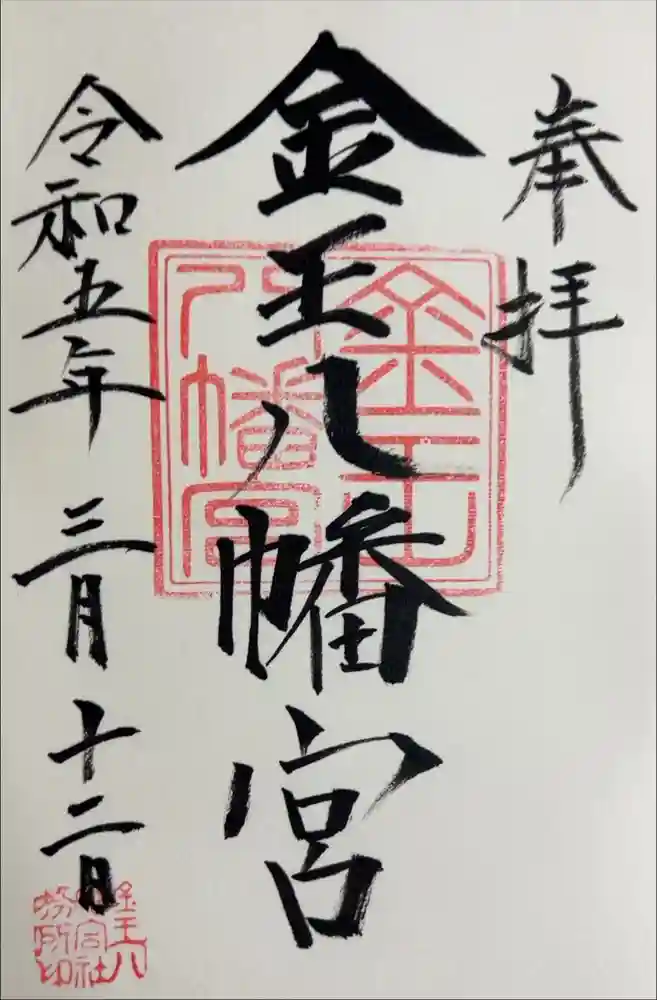 奉拝
金王八幡宮
金王
八幡宮
令和五年 三月 十二日
金王八
幡宮社
務所印